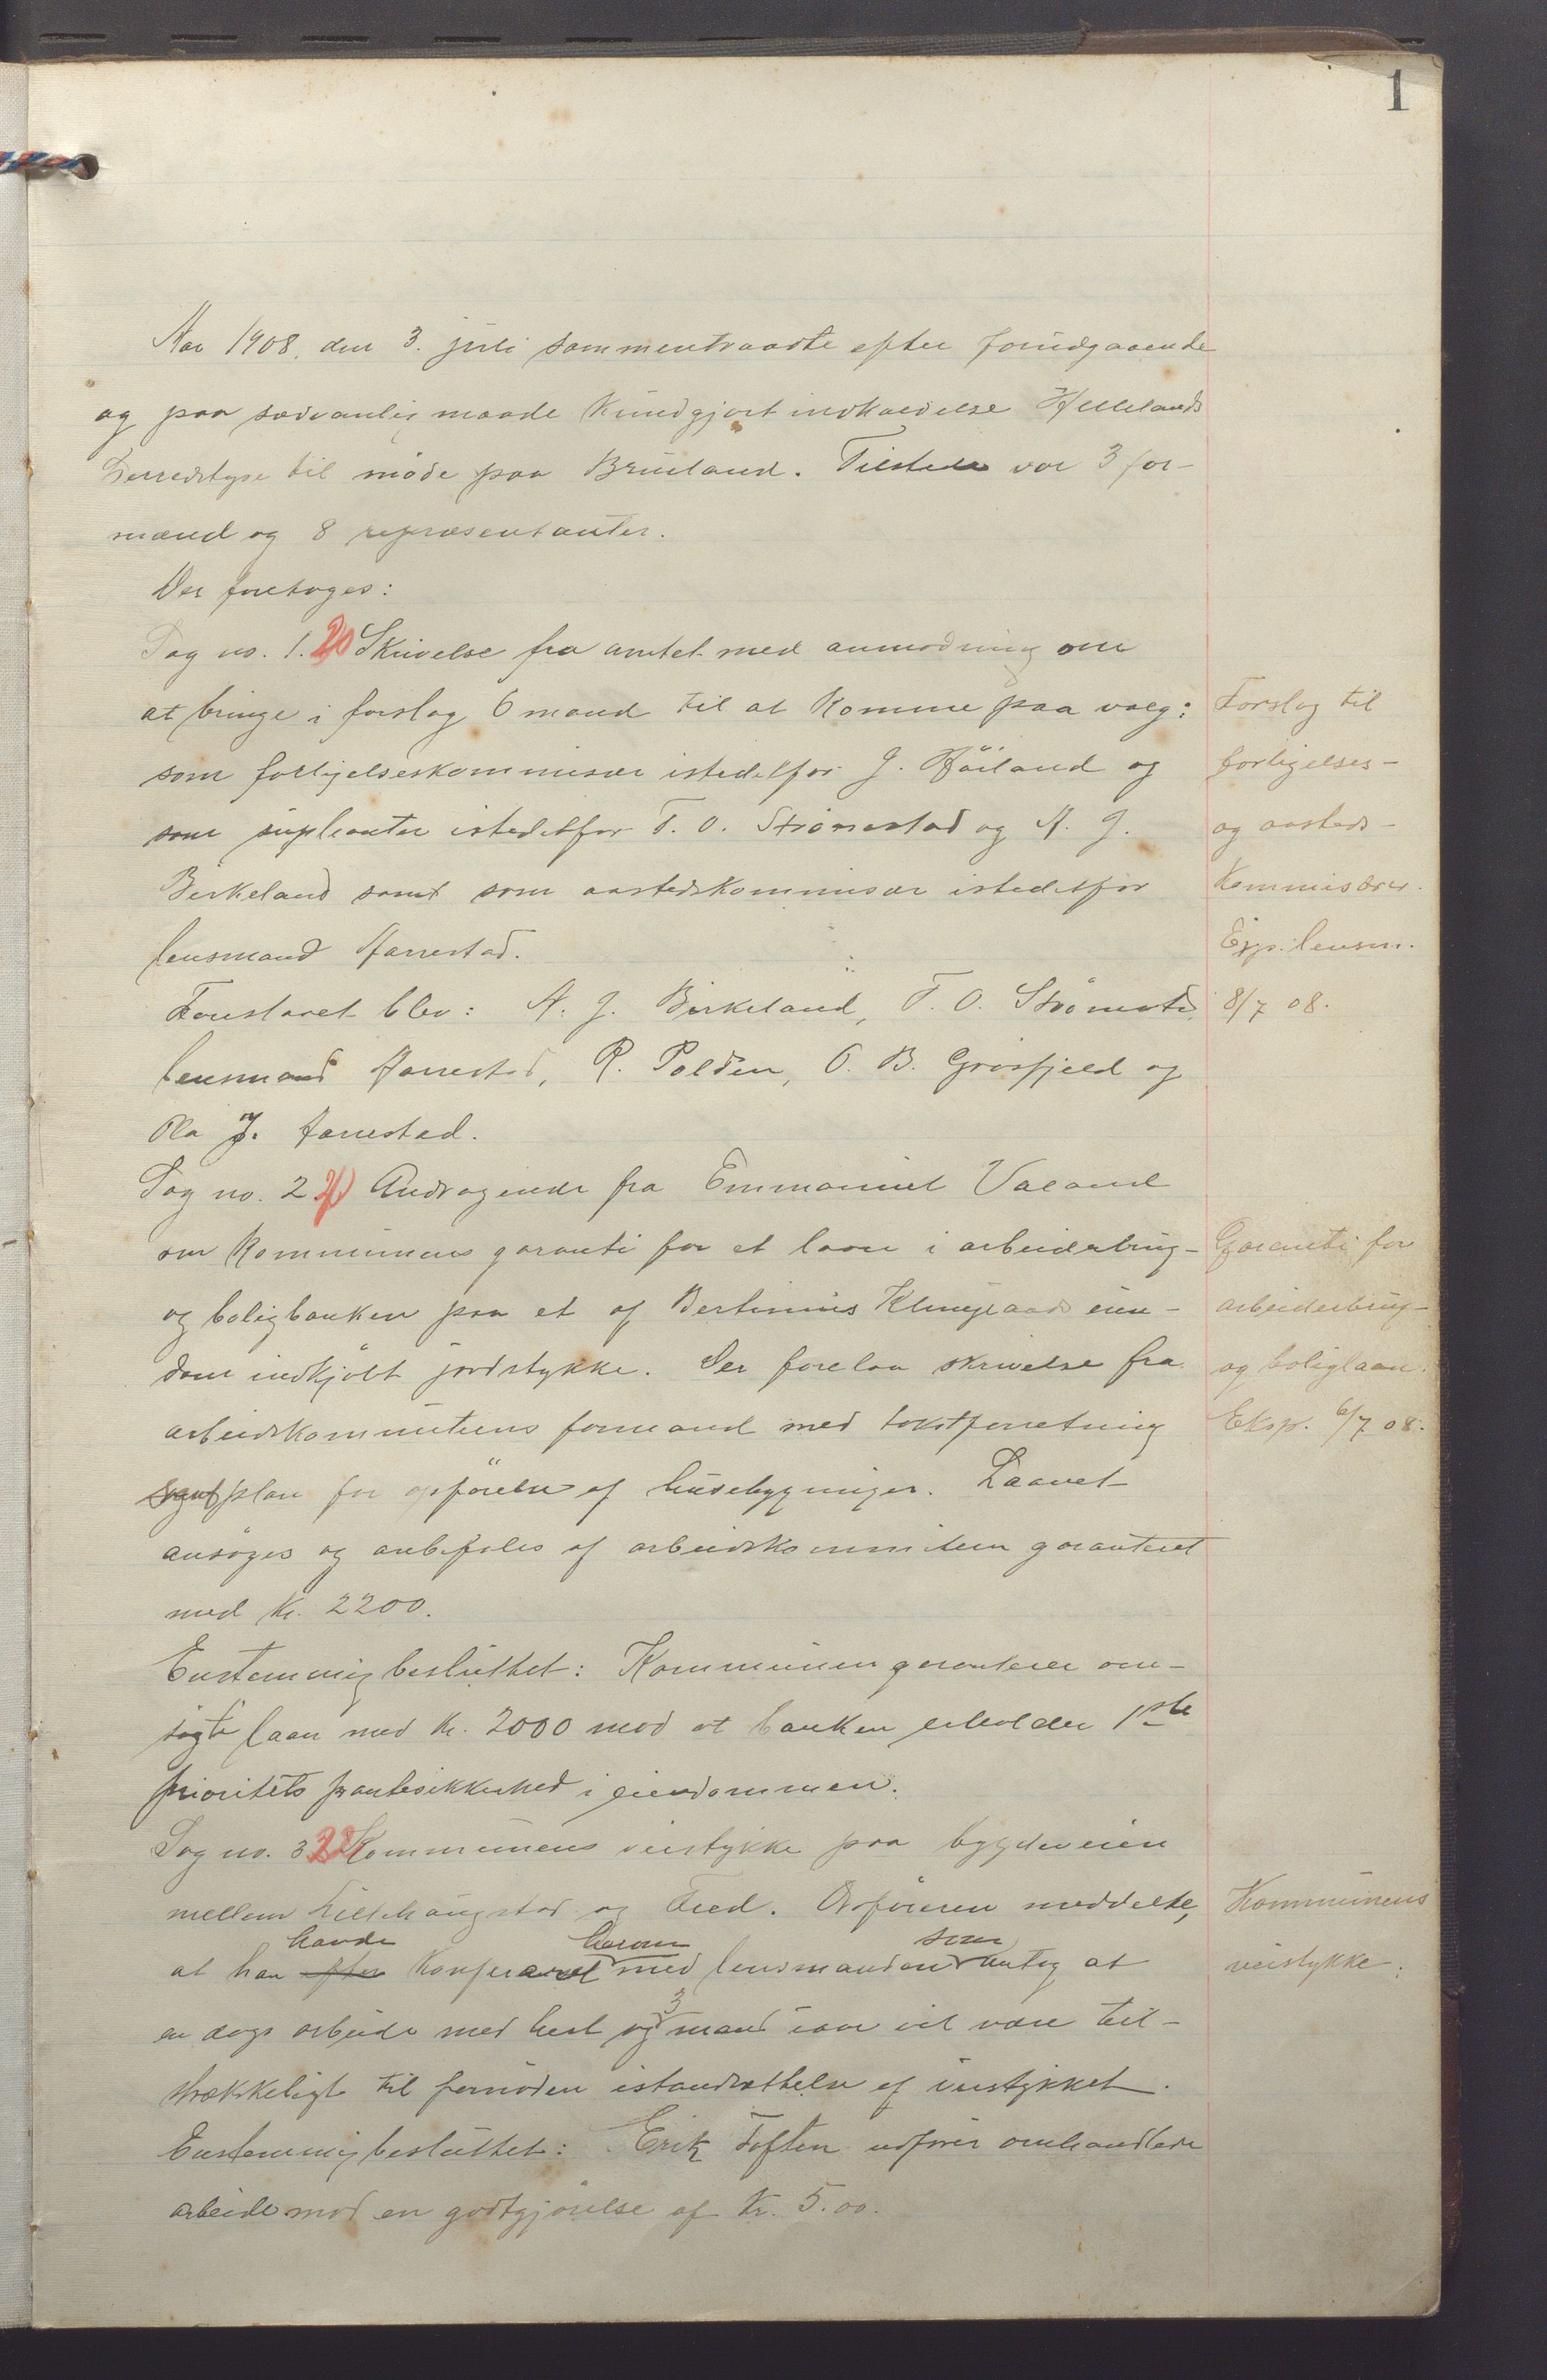 1
Aar 1908, den 3. juli sammentraadte efter forudgaaende
og paa sædvanlig maade kundgjort indkaldelse Hellelands
herredstyre til møde paa Brusland. Tilstede var 3 for-
mænd og 8 repræsentanter.
Der foretoges:
Sag no. 1. 20 Skrivelse fra amtet med anmodning om
at bringe i forslag 6 mænd til at komme paa valg:
som forligelseskommisær istedetfor J. Høiland og
som supleanter istedetfor T. O. Strømstad og A. J.
Birkeland samt som aastedskommisær istedetfor
lensmand Aarrestad.
Foreslaaet blev: A. J. Birkeland, T. O. Strømstd,
lensmand Aarrestad, R. Polden, O. B. Grøsfjeld og
Ola J. Aarrestad.
Sag no. 2 21) Andragende fra Emmanuel Valand
om kommunens garanti for et laan i arbeiderbrug-
og boligbanken paa et af Bertinius Klungland eien-
dom indkjøbt jordstykke. Der forelaa skrivelse fra
arbeidskommiteens formand med takstforretning
samt plan for opførelse af husebygninger. Laanet
ansøges og anbefales af arbeidskommiteen garanteret
med Kr. 2200.
Enstemmig besluttet: Kommunen garanterer om-
søgte laan med Kr. 2000 mod at banken erholder 1ste
prioritets pantesikkerhed i eiendommen.
Sag no. 3 22 Kommunens veistykke paa bygdeveien
mellem Lillehaugstad og Tved. Ordføreren meddelte,
at han efter havde konfereret herom med lensmanden som antog at
en dags arbeide med hest og 3 mand iaar vil være til-
strækkeligt til fornøden istandsættelse af veistykket.
Enstemmig besluttet: Erik Toften udfører omhandlede
arbeide mod en godtgjørelse af Kr. 5.00.
Forslag til
forligelses-
og aasteds-
kommisærer.
Exp. lensm.
8/7 08.
Garanti for
arbeiderbrug-
og boliglaan.
Eksp. 6/7 08.
Kommunens
veistykke.